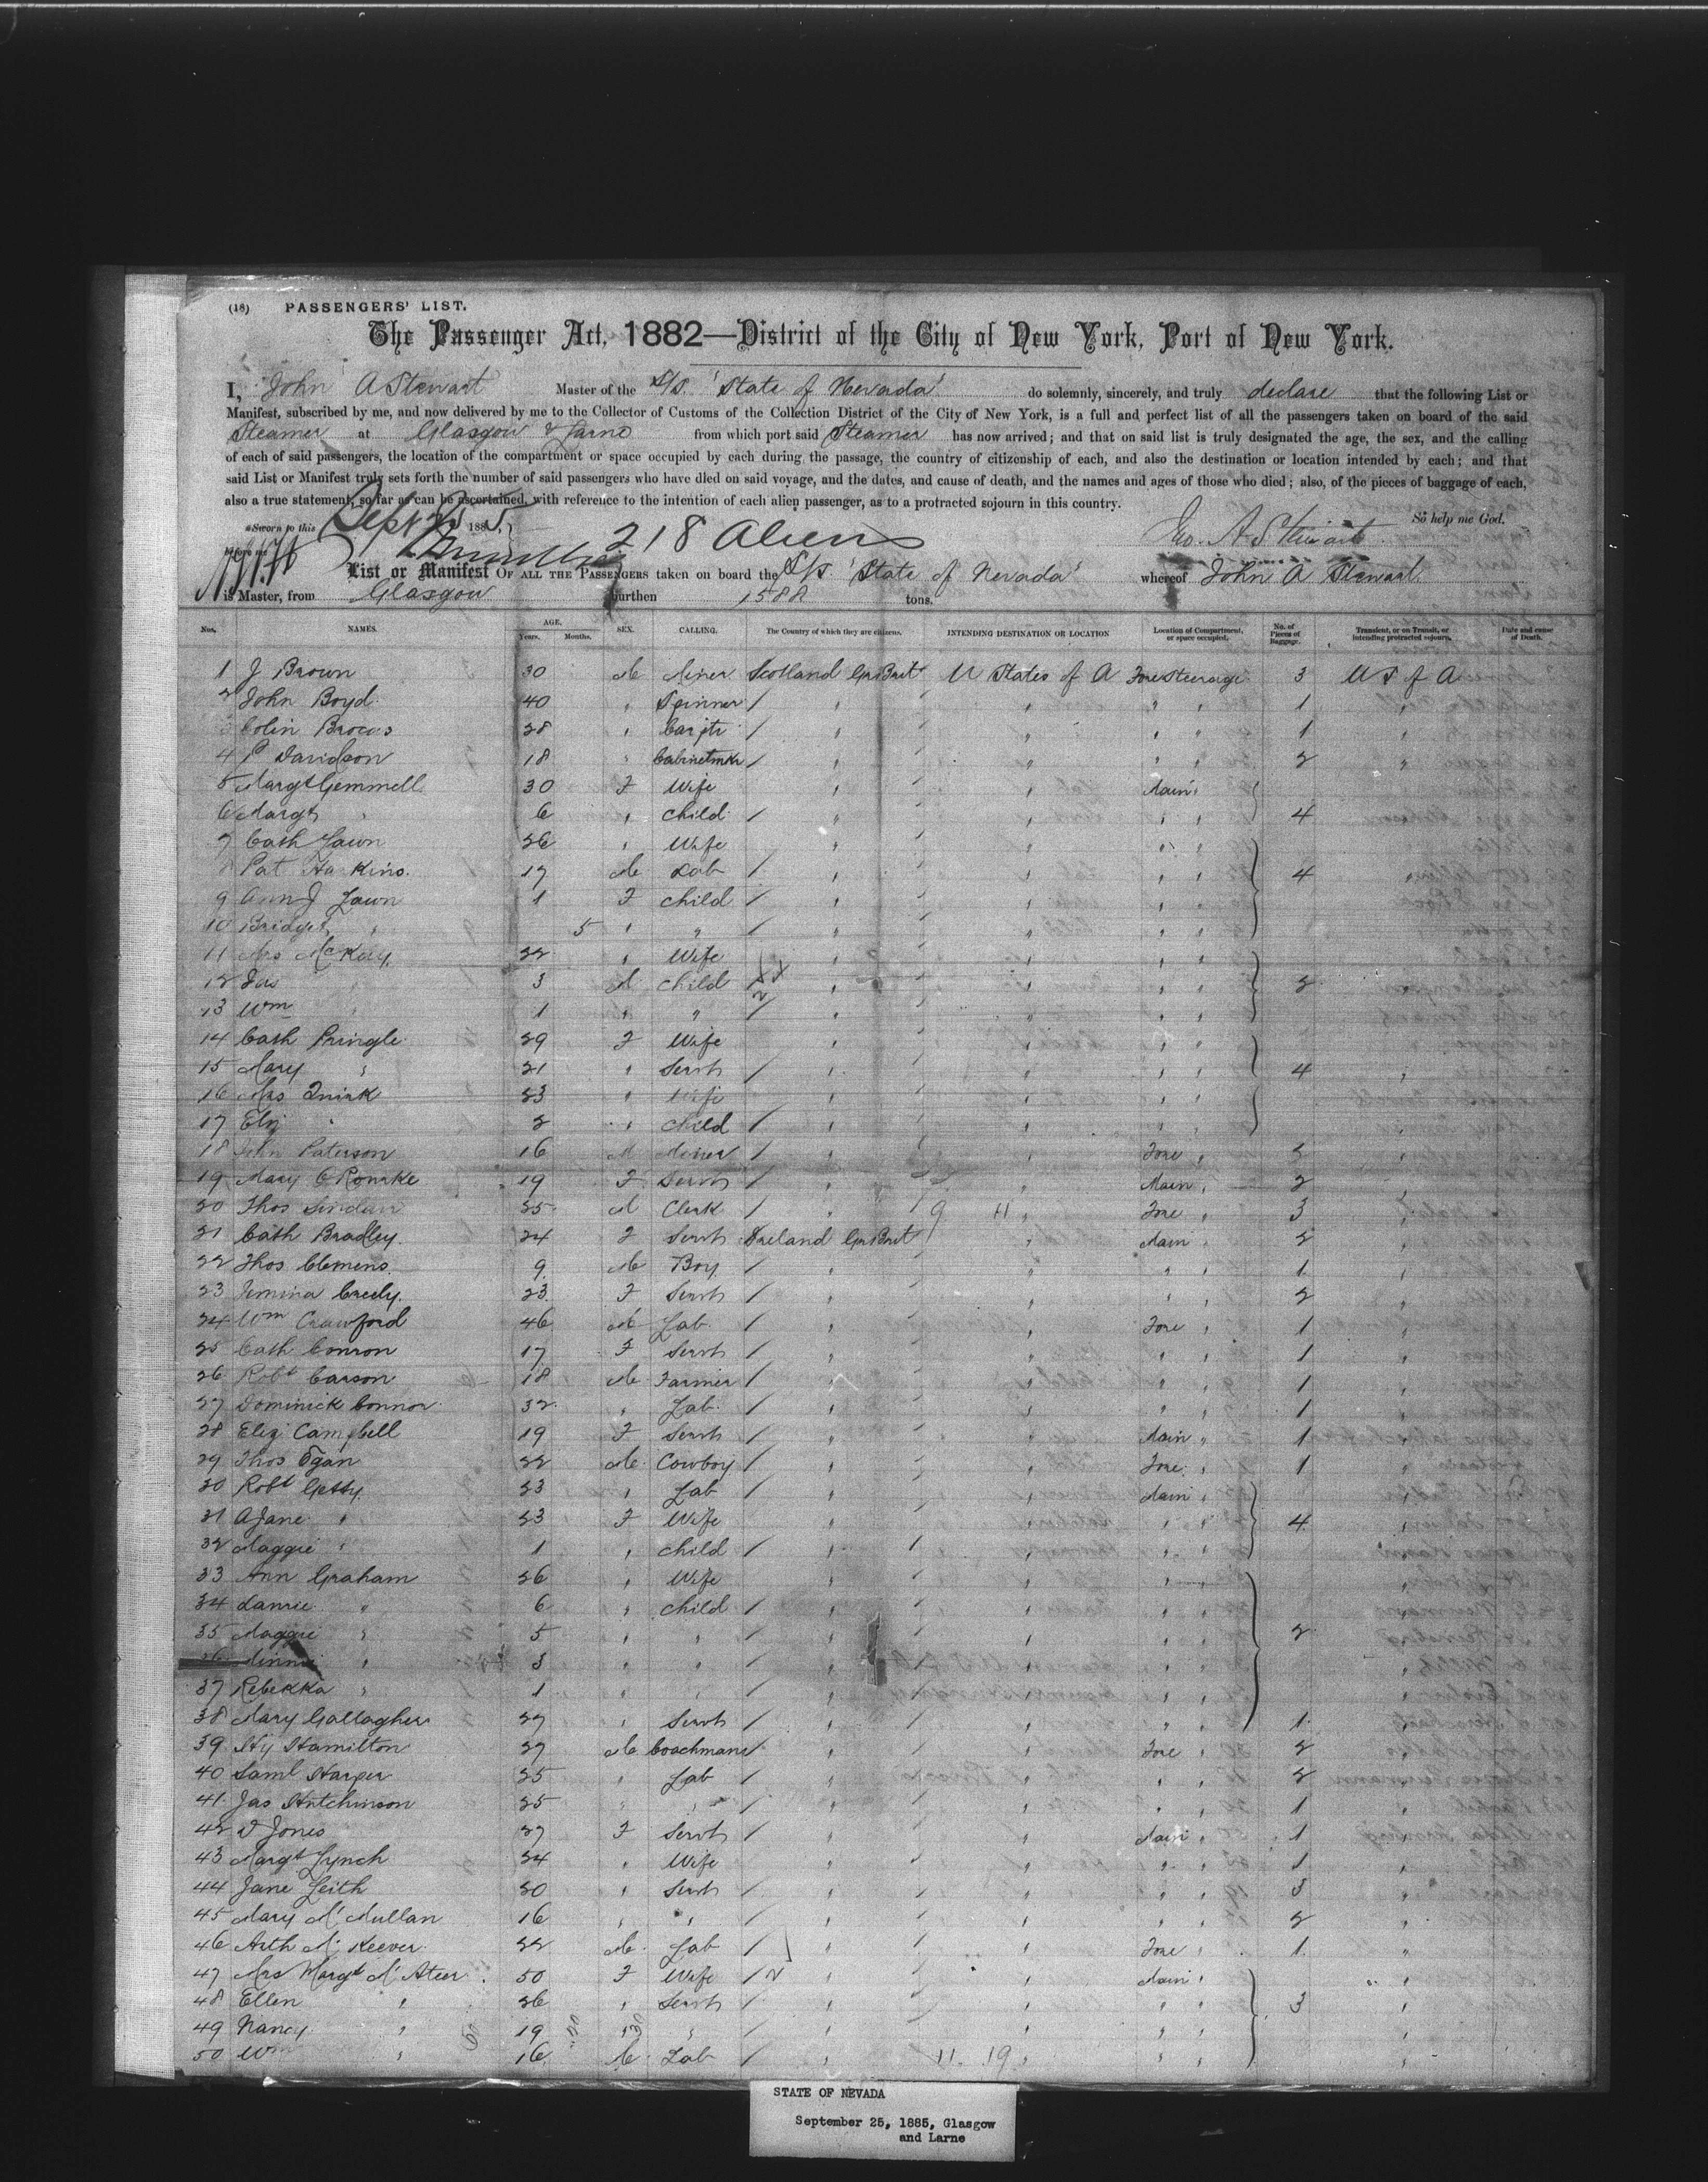 (18) PASSENGERS' LIST.
The Passenger Act, 1882—District of the City of New York, Port of New York.
I, John A Stewart Master of the S/S. 'State of Nevada' do solemnly, sincerely, and truly declare that the following List or
Manifest, subscribed by me, and now delivered by me to the Collector of Customs of the Collection District of the City of New York, is a full and perfect list of all the passengers taken on board of the said
Steamer at Glasgow & Larne from which port said Steamer has now arrived; and that on said list is truly designated the age, the sex, and the calling
of each of said passengers, the location of the compartment or space occupied by each during the passage, the country of citizenship of each, and also the destination or location intended by each; and that
said List or Manifest truly sets forth the number of said passengers who have died on said voyage, and the dates, and cause of death, and the names and ages of those who died; also, of the pieces of baggage of each,
also a true statement, so far as can be ascertained, with reference to the intention of each alien passenger, as to a protracted sojourn in this country.
Sworn to this Sept 25 1885, So help me God.
before me 218 Aliens Jno. A. Stewart
List or Manifest OF ALL THE PASSENGERS taken on board the S/S. 'State of Nevada' whereof John A Stewart
is Master, from Glasgow burthen 1588 tons.
Nos. NAMES. AGE. Years. Months. SEX. CALLING. The Country of which they are citizens. INTENDING DESTINATION OR LOCATION Location of Compartment, or space occupied. No. of Pieces of Baggage. Transient, or on Transit, or intending protracted sojourn. Date and cause of Death.
1 J Brown 30 M Miner Scotland Gr Brit U States of A Fore Steerage 3 U S of A
2 John Boyd 40 " Spinner / " " " " 1 "
3 Colin 28 " Carptr / " " " " 1 "
4 P Davidson 18 " Cabinetmkr / " " " " 2 "
5 Margt Gemmell 30 F Wife " " Main "
6 Margt " 6 " Child / " " " " 4
7 Cath Lawn 26 " Wife " " " "
8 Pat Harkins. 17 M Lab / " " " " 4 "
9 Ann J Lawn 1 F Child / " " " "
10 Bridget " 5 " " / " " " "
11 Mrs McKay 22 " Wife " " " "
12 Jas " 3 M Child " " " " 2 "
13 Wm " 1 " " / " " " "
14 Cath Pringle 29 F Wife " " " "
15 Mary " 21 " Servt / " " " " 4 "
16 Mrs Quirk 23 " Wife " " " "
17 Eliz " 2 " Child / " " " " "
18 John Paterson 16 M Miner / " " Fore " 2 "
19 Mary O'Rourke 19 F Servt / " " Main " 2 "
20 Thos Sinclair 25 M Clerk / " 9 11 " Fore " 3 "
21 Cath Bradley 24 F Servt Ireland Gr Brit " Main 2 "
22 Thos Clemens 9 M Boy / " " " " 1 "
23 Jemima Creely 23 F Servt / " " " " 2 "
24 Wm Crawford 46 M Lab / " " Fore " 1 "
25 Cath Conron 17 F Servt / " " " " 1 "
26 Robt Carson 18 M Farmer / " " " " 1 "
27 Dominick Connor 32 " Lab / " " " " 1 "
28 Eliz Campbell 19 F Servt / " " Main " 1 "
29 Thos Egan 22 M Cowboy / " " Fore " 1 "
30 Robt Getty 23 " Lab / " " Main "
31 A Jane " 23 F Wife " " " " 4 "
32 Maggie " 1 " Child / " " " "
33 Ann Graham 26 " Wife " " " " "
34 " 6 " Child / " " " " "
35 Maggie " 5 " " / " " " " 2 "
36 Minnie " 3 " " / " " " " "
37 Rebekka " 1 " " / " " " " "
38 Mary Gallagher 27 " Servt / " " " " 1 "
39 Hy Hamilton 27 M Coachman / " " Fore " 2 "
40 Saml Harper 25 " Lab / " " " " 2 "
41 Jas Hutchinson 25 " " / " " " " 1 "
42 D Jones 27 F Servt / " " Main " 1 "
43 Margt Lynch 24 " Wife " " " " 1 "
44 Jane Leith 20 " Servt / " " " " 3 "
45 Mary McMullan 16 " " / " " " " 2 "
46 Arth McKeever 22 M Lab / " " Fore " 1 "
47 Mrs Margt McAteer 50 F Wife / " " Main " "
48 Ellen " 26 " Servt / " " " " 3 "
49 Nancy " 19 " " / " " " " "
50 Wm " 16 M Lab / " 11 19 " " " "
STATE OF NEVADA
September 25, 1885, Glasgow
and Larne